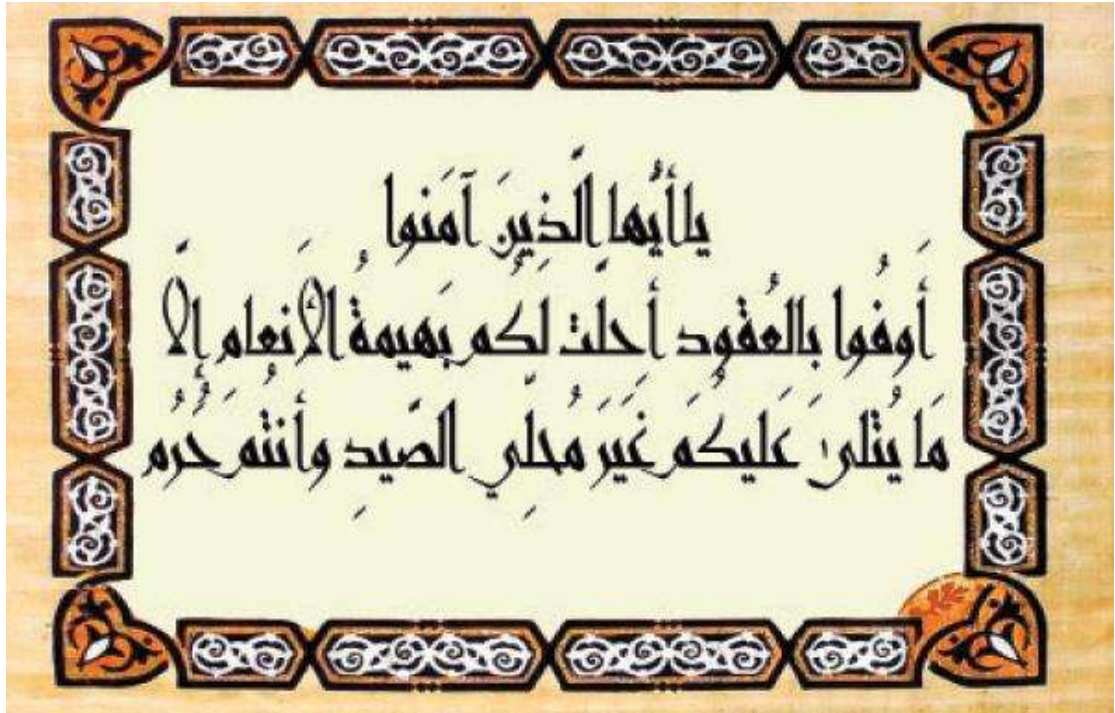 ياأيُّها الَّذِينَ آمَنوا
أَوفُوا بالعُقود أحلَّت لَكُم بَهيمةُ الأَنعام إلَّا
مَا يُتلىٰ عَليكُم غَيَر مُحلِّي الصَّيدِ وأنتُم حُرُم